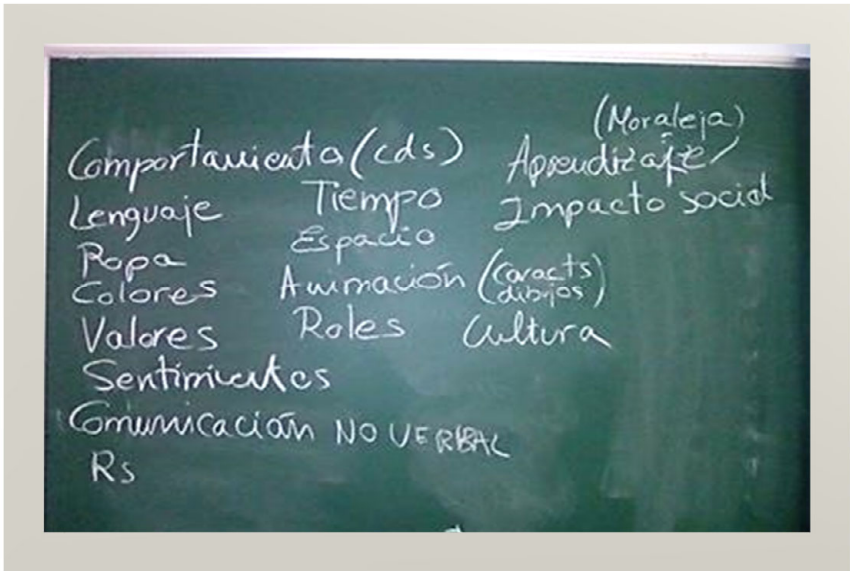 (Moraleja)
Comportamiento (cds) Aprendizaje/
Lenguaje Tiempo Impacto social
Ropa Espacio
Colores Animación (Caracts dibujos)
Valores Roles Cultura
Sentimientos
Comunicación NO VERBAL
Rs